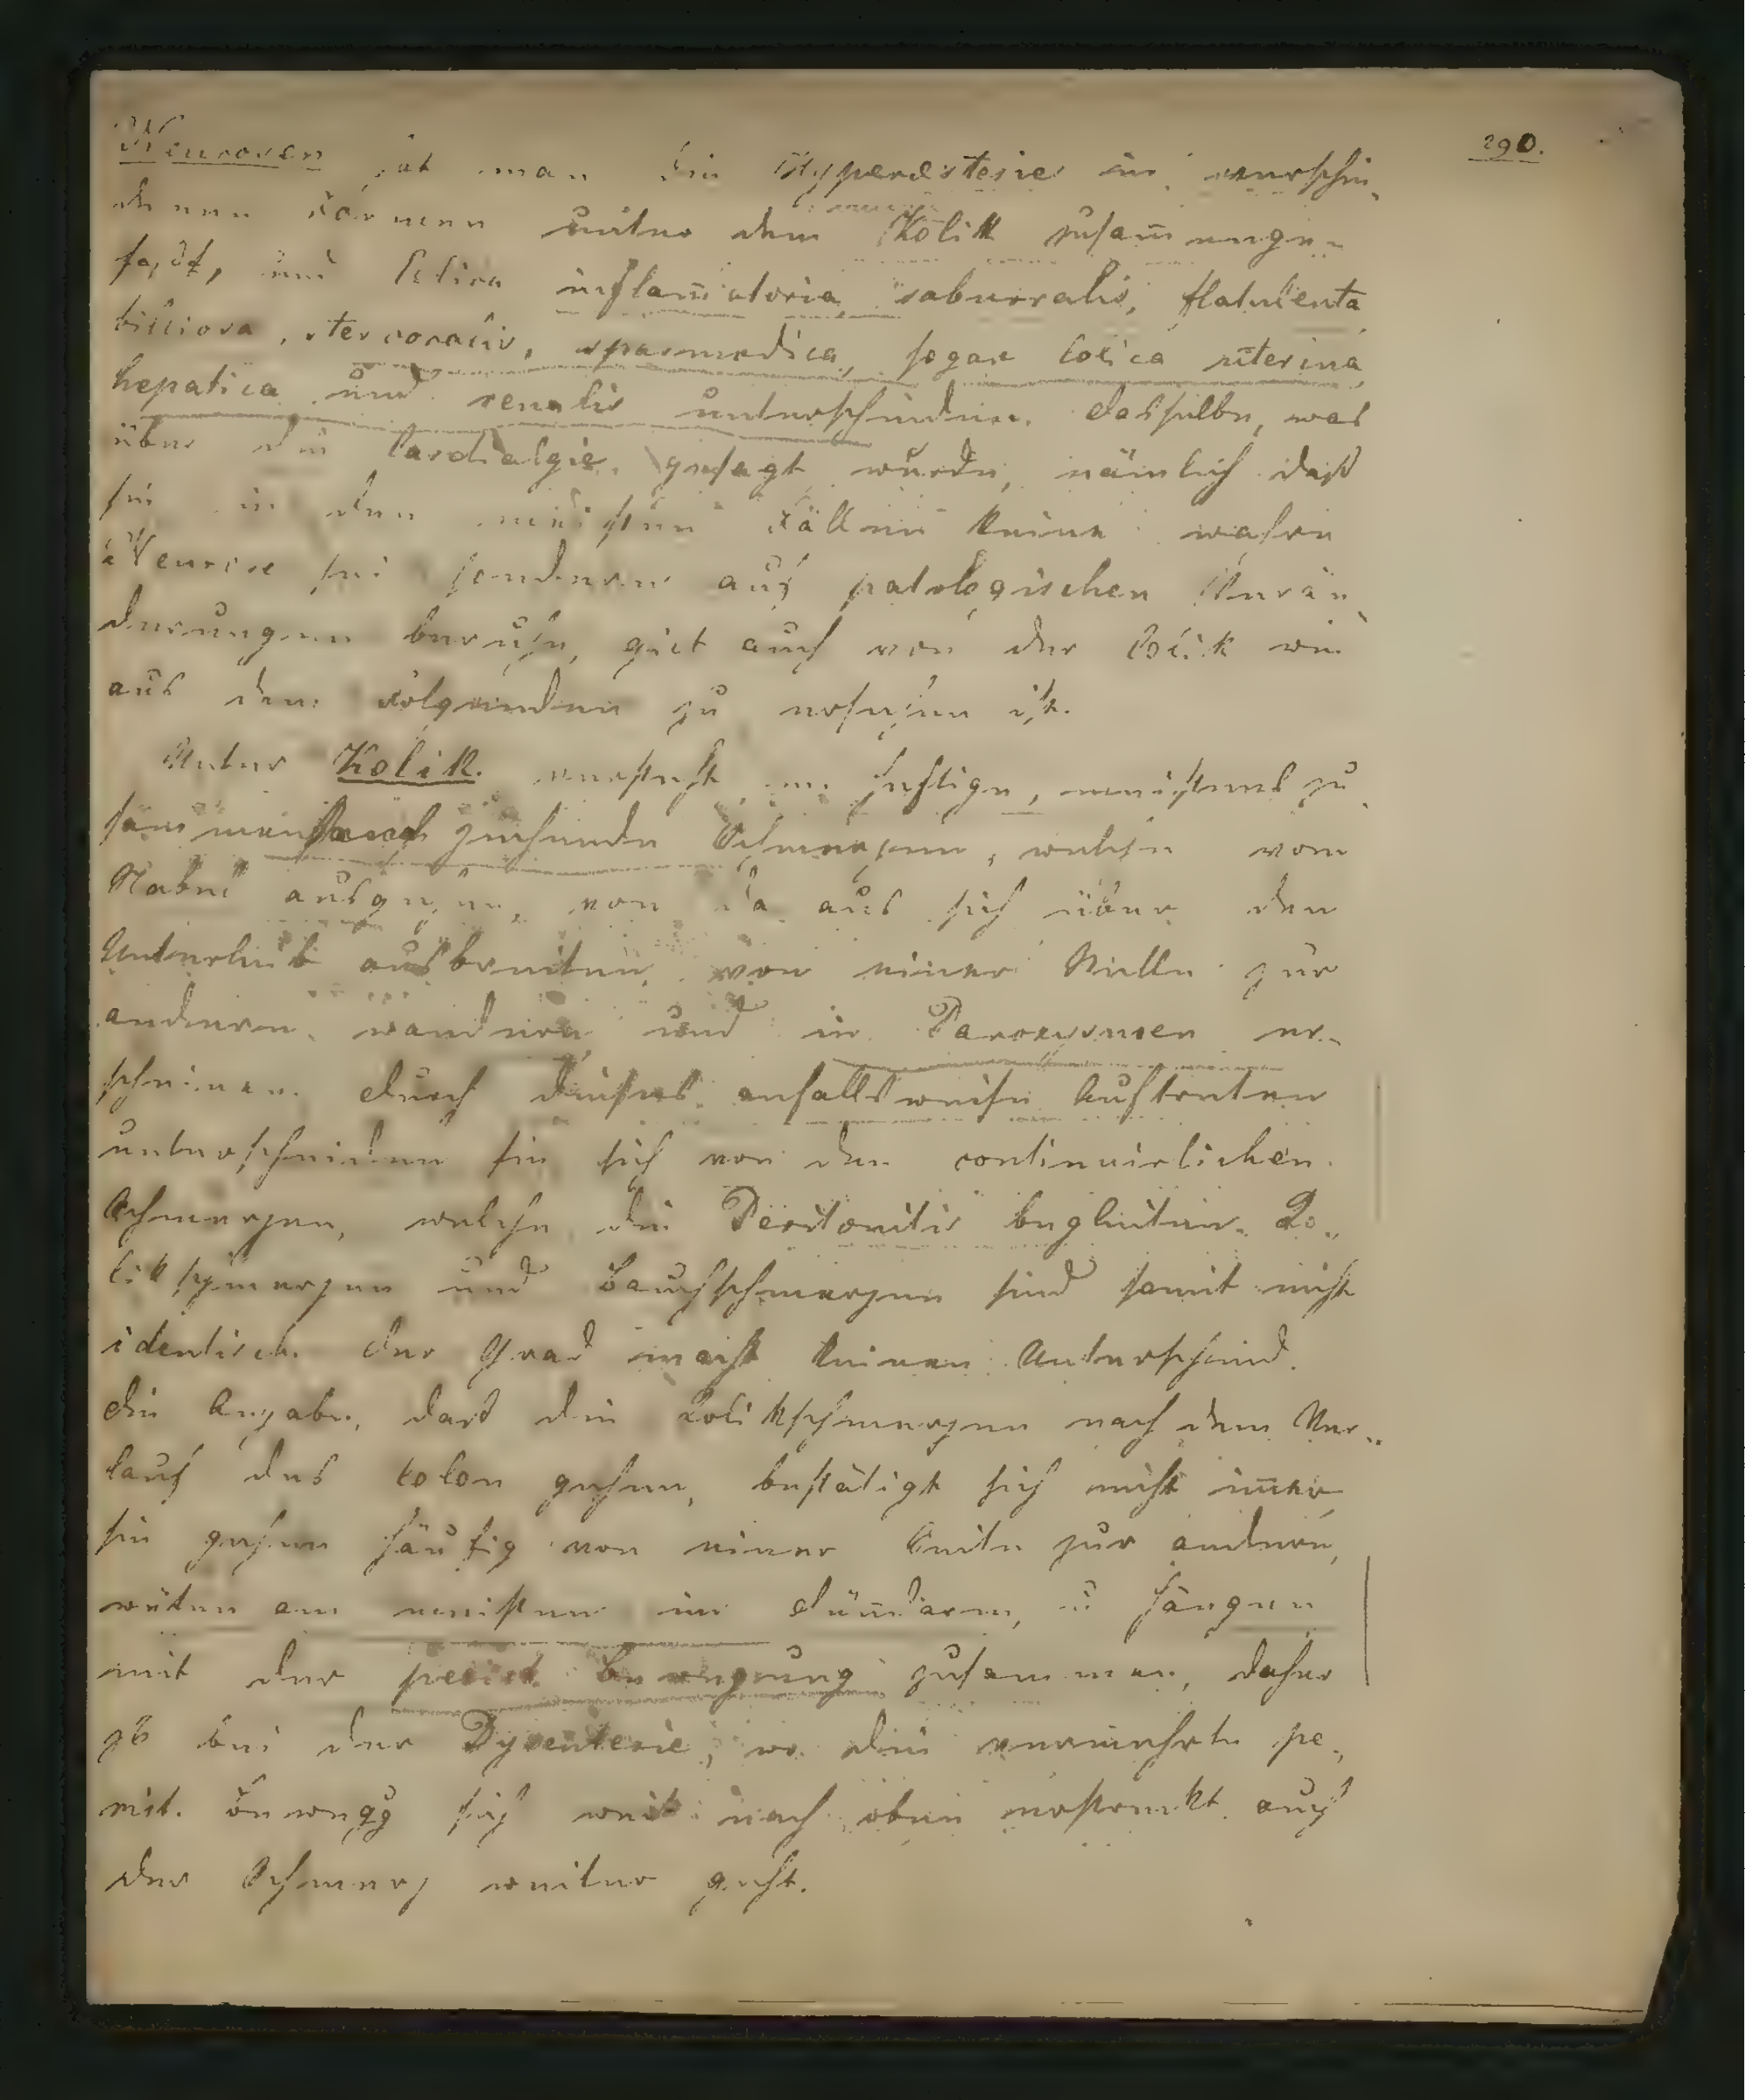 290.
Neurosen hat man die Hyperästesie in verschie„
denen Formen unter dem Kolik zusam̅enge„
faßt, und Colica inflam̅atoria saburralis, flatulenta
billiosa, stercoralis, spasmodica, sogar colica uterina
hepatica und renalis unterschieden. Dasselbe, was
über die Cardialgie gesagt wurde, nämlich daß
sie in den meisten Fällen keine wahre
Neurose sei sondern auf patologischen Verän„
derungen beruhe, gilt auch von der Colik wie
aus dem Folgenden zu ersehen ist.
Unter Kolik versteht m. heftige, meistens zu„
sammen ziehende Schmerzen, welche vom
Nabel ausgehen, von da aus sich über den
Unterleib ausbreiten, von einer Stelle zur
anderen wandern und in Paroxysmen er„
scheinen. Durch dieses anfallsweise Auftreten
unterscheiden sie sich von den continuirlichen
Schmerzen, welche die Peritonitis begleiten. Ko„
likschmerzen und Bauchschmerzen sind somit nicht
identisch. Der Grad macht keinen Unterschied.
Die Angabe, dass die Kolikschmerzen nach dem Ver„
lauf des Colon gehen, bestätigt sich nicht im̅er
sie gehen häufig von einer Seite zur anderen,
wüten am meisten im Dün̅darm, u hängen
mit der perist. Bewegung zusammen, daher
zB bei der Dysenterie, wo die vermehrte pe„
rist. Bewegg sich weit nach oben erstreckt auch
der Schmerz weiter geht.